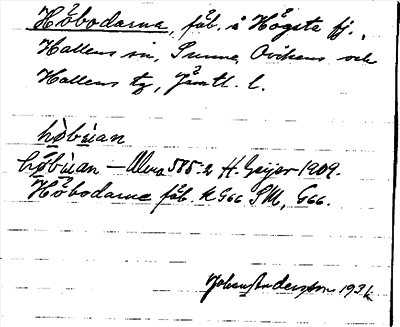 Höbodarna, fäb. å Högsta fj.,
Hallens sn, Sunne, Ovikens och
Hallens tg, Jämtl. l.
hǫ̀bùan
hǫ̀bùan — Ulma 585:2 H. Geijer 1909.
Höbodarne fäb. K G66 SM, G66.
Johan Anderson 193